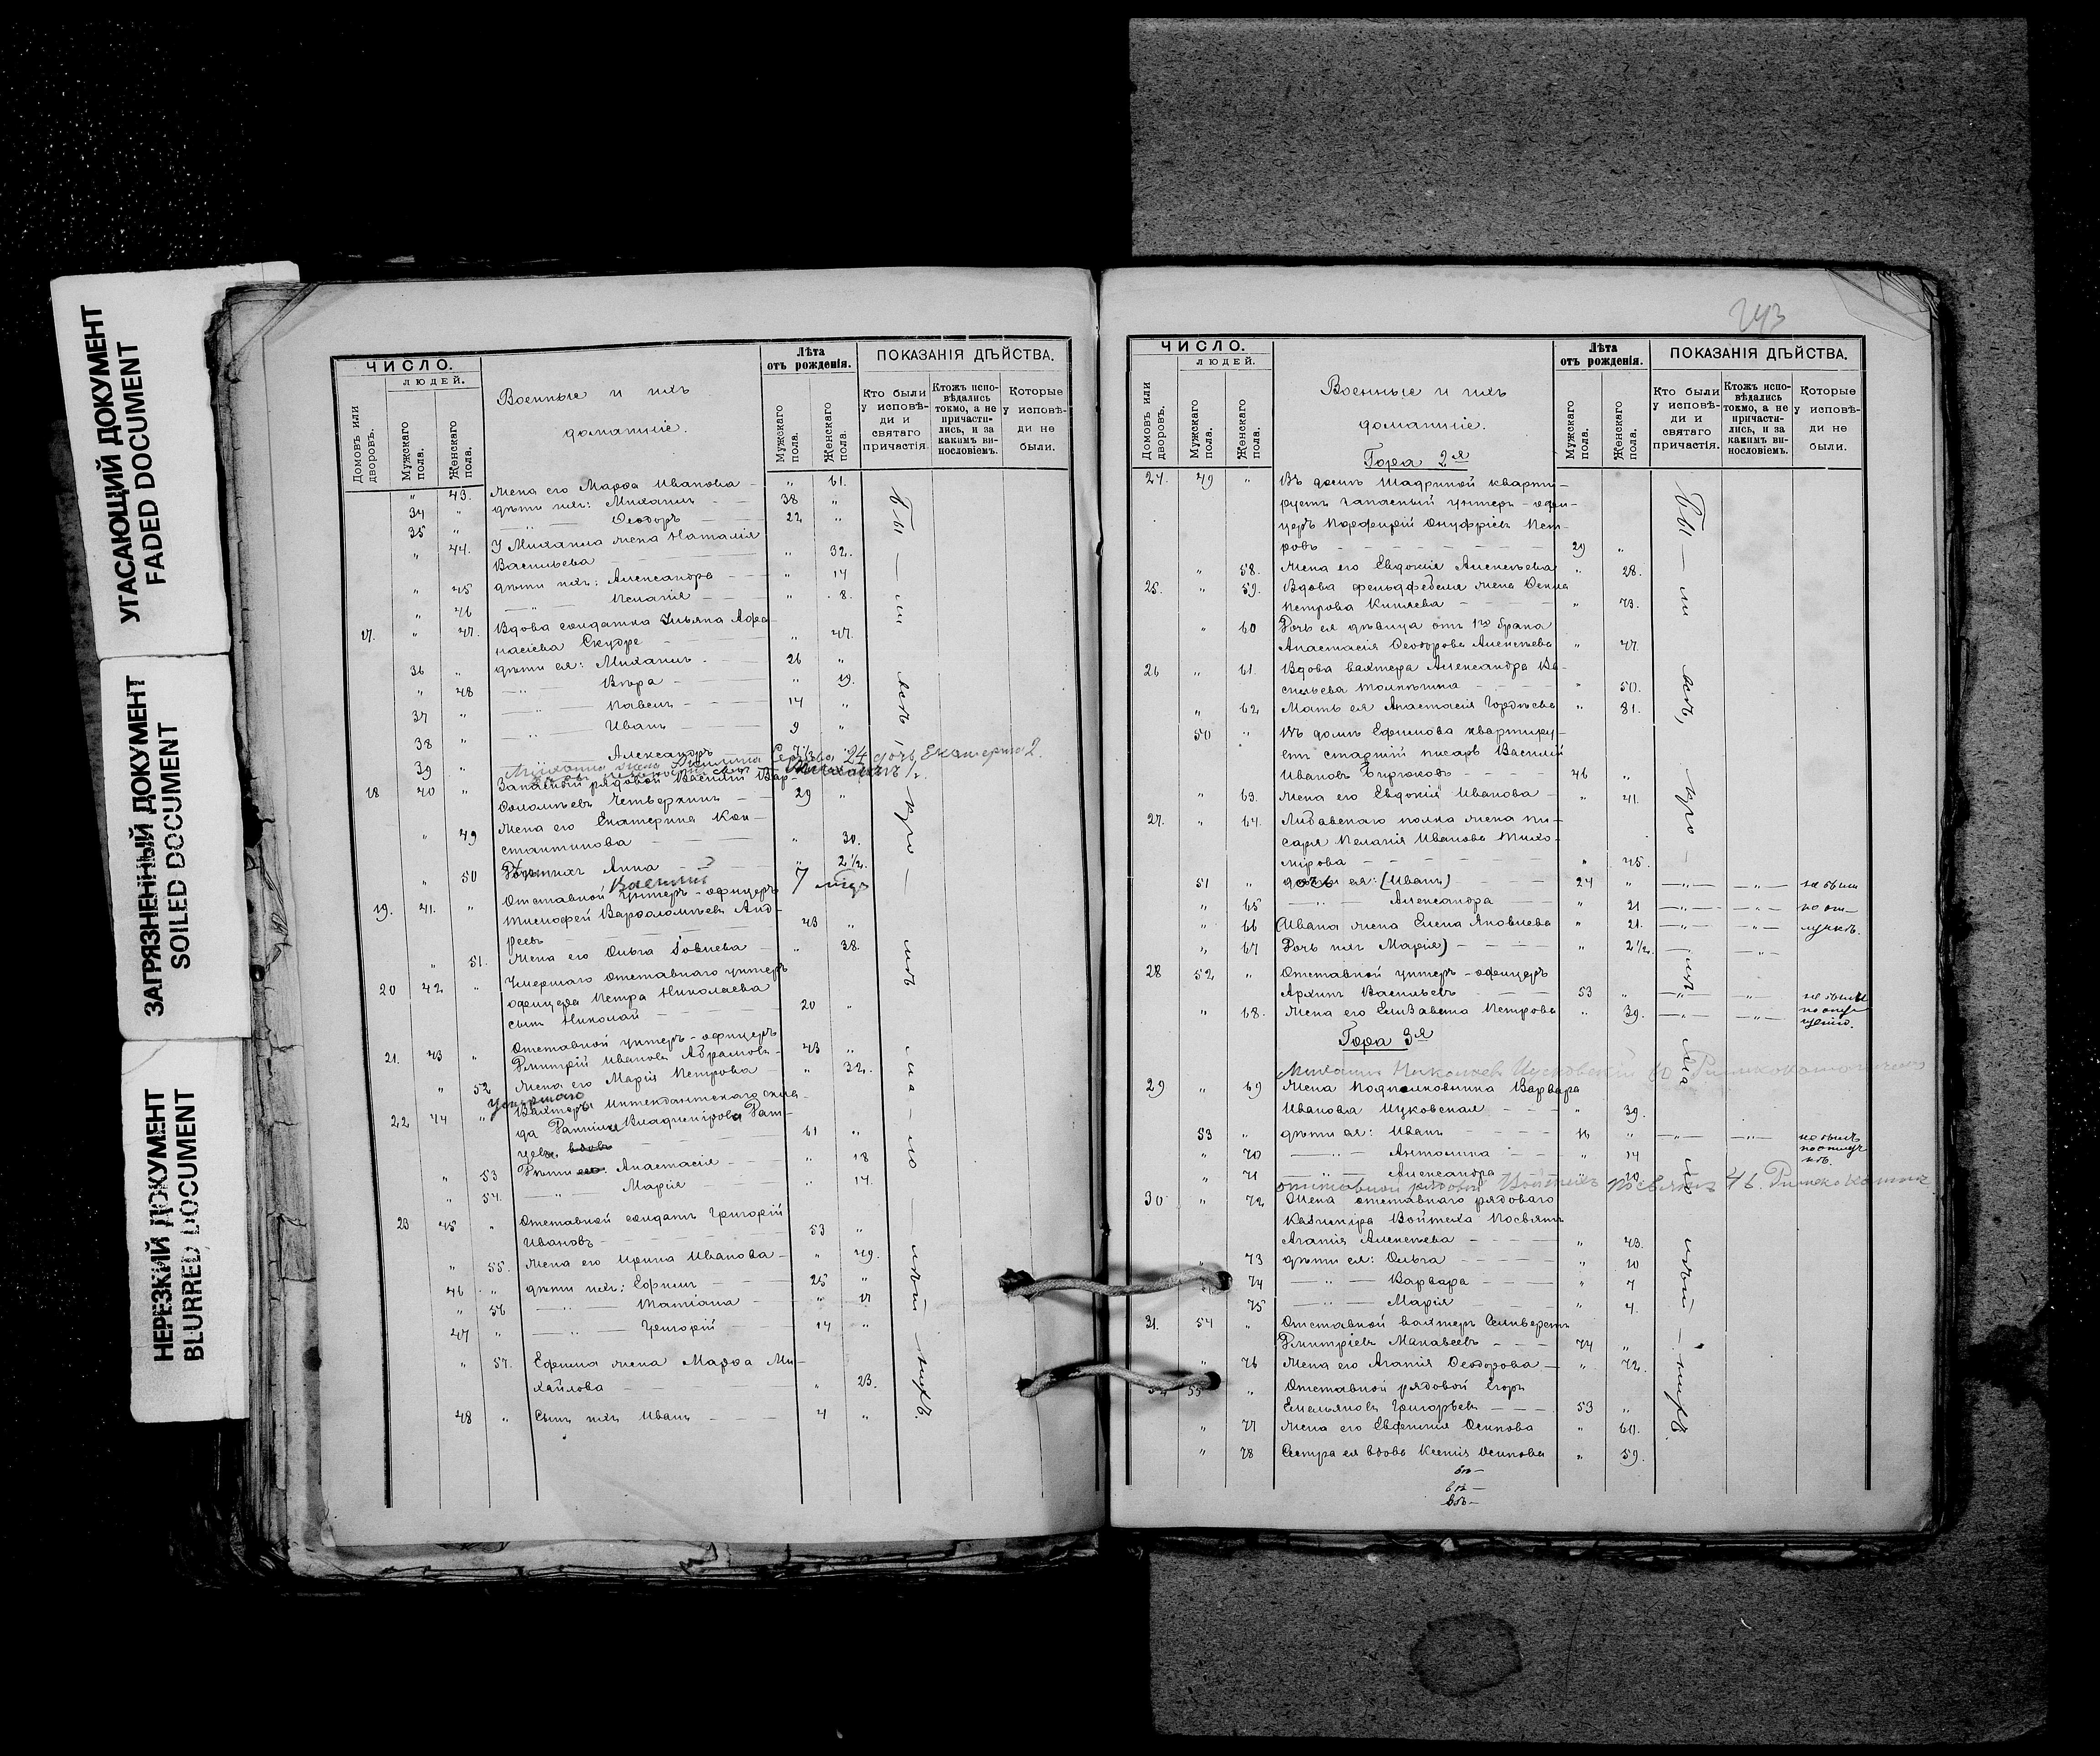 УГАСАЮЩИЙ ДОКУМЕНТ
FADED DOCUMENT
ЗАГРЯЗНЕННЫЙ ДОКУМЕНТ
SOILED DOCUMENT
НЕРЕЗКИЙ ДОКУМЕНТ
BLURRED DOCUMENT
ЧИСЛО.
ЛЮДЕЙ.
Домовъ или дворовъ.
Мужскаго пола.
Женскаго пола.
Военные и ихъ
домашніе.
Лѣта
отъ рожденія.
Мужскаго пола.
Женскаго пола.
ПОКАЗАНІЯ ДѢЙСТВА.
Кто были
у исповѣ-
ди и
святаго
причастія.
Ктожъ испо-
вѣдались
токмо, а не
причасти-
лись, и за
какимъ ви-
нословіемъ.
Которые
у исповѣ-
ди не
были.
" 43. Жена его Марѳа Иванова " 61.
34 " дѣти ихъ: Михаилъ 38 "
35 " Ѳеодоръ 22 "
" 44. У Михаила жена Наталія
Васильева " 32.
" 45 дѣти ихъ: Александра " 14
" 46 Пелагія " 8.
17. " 47. Вдова солдатка Ульяна Аѳа-
насіева Скудре " 47.
36 " дѣти ея: Михаилъ 26 "
" 48 Вѣра " 19.
37 " Павелъ 14 "
38 " Иванъ 9 "
39 " Александръ
24 дочь Екатерина 2.
18 40 " Запасный рядовой Василій Вар-
Соломѣевъ Четверкинъ 29 "
" 49 Жена его Екатерина Кон-
стантинова " 30.
" 50 Анна " 2 1/2.
Василій 7 мѣс.
19. 41. " Отставной унтеръ-офицеръ
Тимофей Варѳоломѣевъ Анд-
реевъ 43 "
" 51. Жена его Ольга Іовлева " 38.
20 42 " Умершаго отставнаго унтеръ
офицера Петра Николаева
сынъ Николай 20 "
21. 43 " Отставной унтеръ-офицеръ
Дмитрій Ивановъ Абрамовъ 43 "
" 52 Жена его Марія Петрова " 32.
умершаго
22 44 " Вахтера Интендантскаго скла-
да 61 "
" 53 Дѣти Анастасія " 18
" 54. Марія " 14.
23 45 " Отставной солдатъ Григорій
Ивановъ 53 "
" 55. Жена его Ирина Иванова " 49.
46 " дѣти ихъ: Ефимъ 25 "
" 56 Татіана " 17
47 " Григорій 14 "
" 57. Ефима жена Марѳа Ми-
хайлова " 23.
48 " Сынъ ихъ Иванъ 4 "
Бы — ли всѣ,
243
ЧИСЛО.
ЛЮДЕЙ.
Домовъ или дворовъ.
Мужскаго пола.
Женскаго пола.
Военные и ихъ
домашніе.
Гора 2я
Лѣта
отъ рожденія.
Мужскаго пола.
Женскаго пола.
ПОКАЗАНІЯ ДѢЙСТВА.
Кто были
у исповѣ-
ди и
святаго
причастія.
Ктожъ испо-
вѣдались
токмо, а не
причасти-
лись, и за
какимъ ви-
нословіемъ.
Которые
у исповѣ-
ди не
были.
24. 49 " Въ домѣ Шадриной кварти-
руетъ запасный унтеръ-офи-
церъ Порфирій Онуфріевъ Пет-
ровъ 29 "
" 58. Жена его Евдокія Алексѣева " 28.
25. " 59. Вдова фельдфебеля жена Ѳекла
Петрова Киляева " 73.
" 60 Дочь ея дѣвица отъ 1го брака
Анастасія Ѳеодорова Алексѣева " 47.
26 " 61. Вдова вахтера Александра Ва-
сильева Толпыгина " 50.
" 62 Мать ея Анастасія Гордѣева " 81.
50 " Въ домѣ Ефимова квартиру-
етъ старшій писарь Василій
Ивановъ Бирюковъ 46 "
" 63. Жена его Евдокія Иванова " 41.
27. " 64. Либавскаго полка жена пи-
саря Пелагія Иванова Тихо-
мірова " 45.
51 " дѣти ея: (Иванъ) 24 " не были
" 65 Александра " 21 по от-
" 66 (Ивана жена Елена Яковлева " 21. лучкѣ.
" 67 Дочь ихъ Марія) " 2 1/2
28 52 " Отставной унтеръ-офицеръ
Архипъ Васильевъ 53 " не были
" 68. Жена его Елизавета Петрова " 39.
Гора 3я
29 " 69 Жена Подполковника Варвара
Иванова Цуковская " 39.
53 " дѣти ея: Иванъ 16 " не былъ
" 70 Антонина " 14
" 71 Александра " 10
отставной рядовой Войтехъ Посвятъ 46.
30 " 72 Жена отставнаго рядоваго
Казиміра Войтеха Посвятъ
Агапія Алексѣева " 43.
" 73 дѣти ея: Ольга " 10
74 Варвара " 7
75 Марія " 4.
31. 54 " Отставной вахтеръ Селиверстъ
Дмитріевъ Макавеевъ 74 "
" 76 Жена его Агапія Ѳеодорова " 72.
55 " Отставной рядовой Егоръ
Емельяновъ Григорьевъ 53 "
" 77 Жена его Евфимія Осипова " 60.
" 78 Сестра ея вдова Ксенія Осипова " 59.
Бы — ли всѣ,